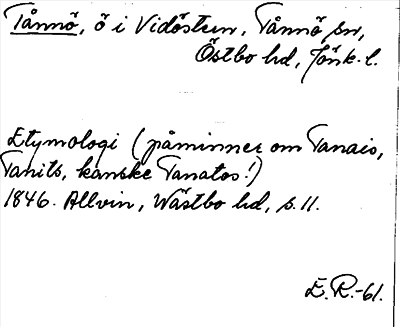 Tånnö, ö i Vidöstern, Tånnö sn,
Östbo hd, Jönk. l.
Etymologi (påminner om Tanais,
Tanits, kanske Tanatos!)
1846. Allvin, Wästbo hd, s. 11.
E. R.-61.